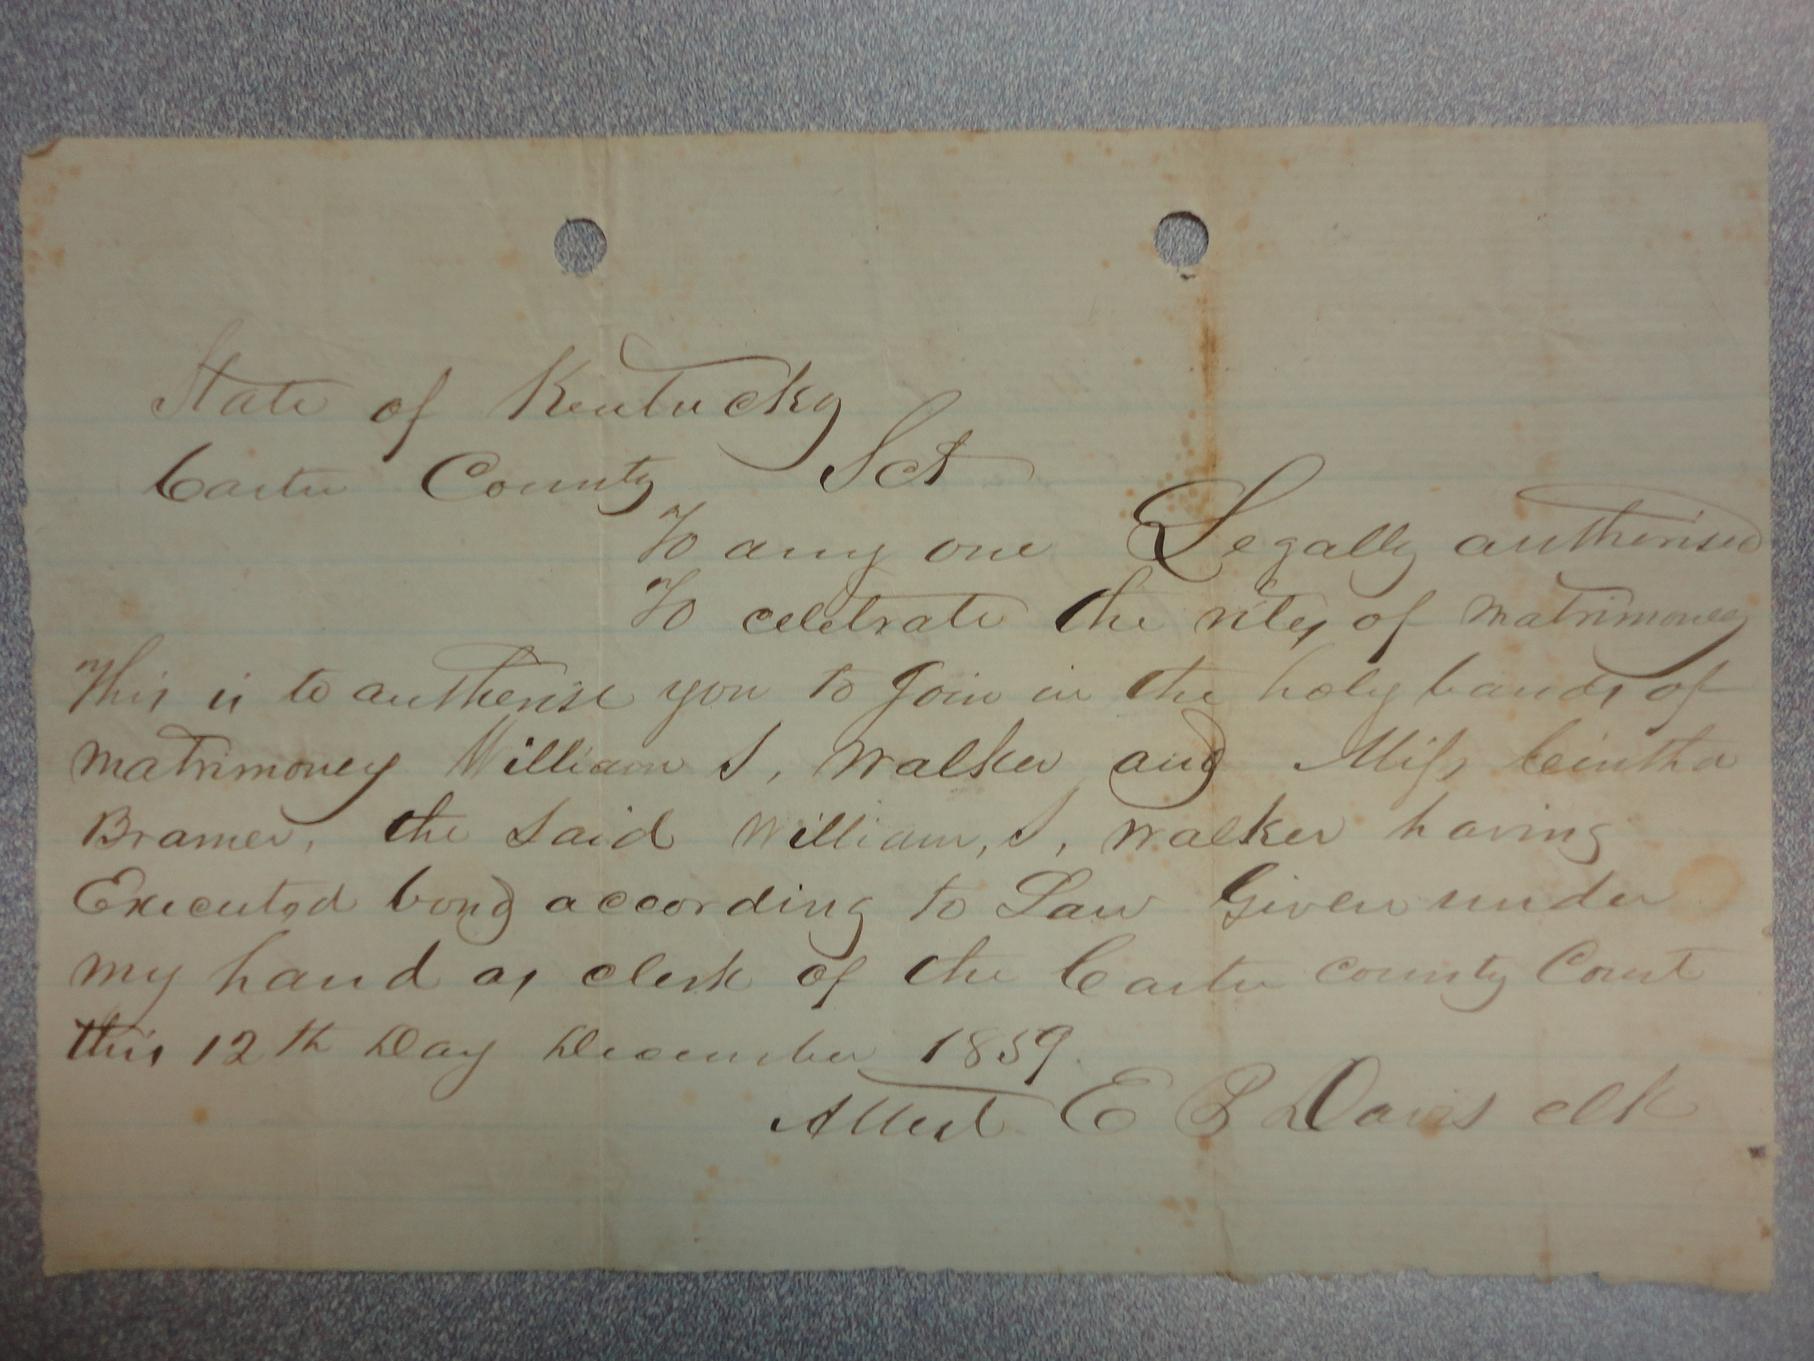 State of Kentucky
Carter County Sct
To any one Legally autherised
To celebrate the rites of matrimoney
This is to autherise you to Join in the holy bands of
matrimoney William S, Walker and Miss Cintha
Bramer, the said William, S, Walker having
Executed bond according to Law Given under
my hand as clerk of the Carter county Court
this 12th Day December 1859
Attest E P Davis clk